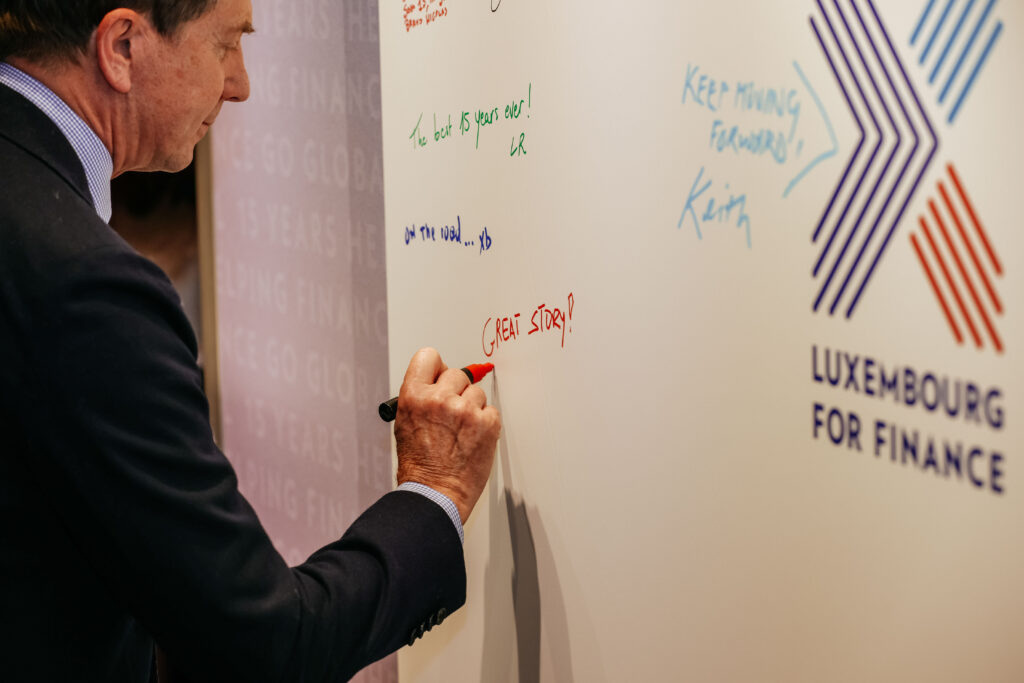 The best 15 years ever!
LR
on the road... xb
GREAT STORY!
KEEP MOVING
FORWARD!
Keith
LUXEMBOURG
FOR FINANCE
YEARS HE
NG FINANC
CE GO GLOBA
15 YEARS HE
PING FINANC
CE GO GLOB
15 YEARS H
PING FINAN